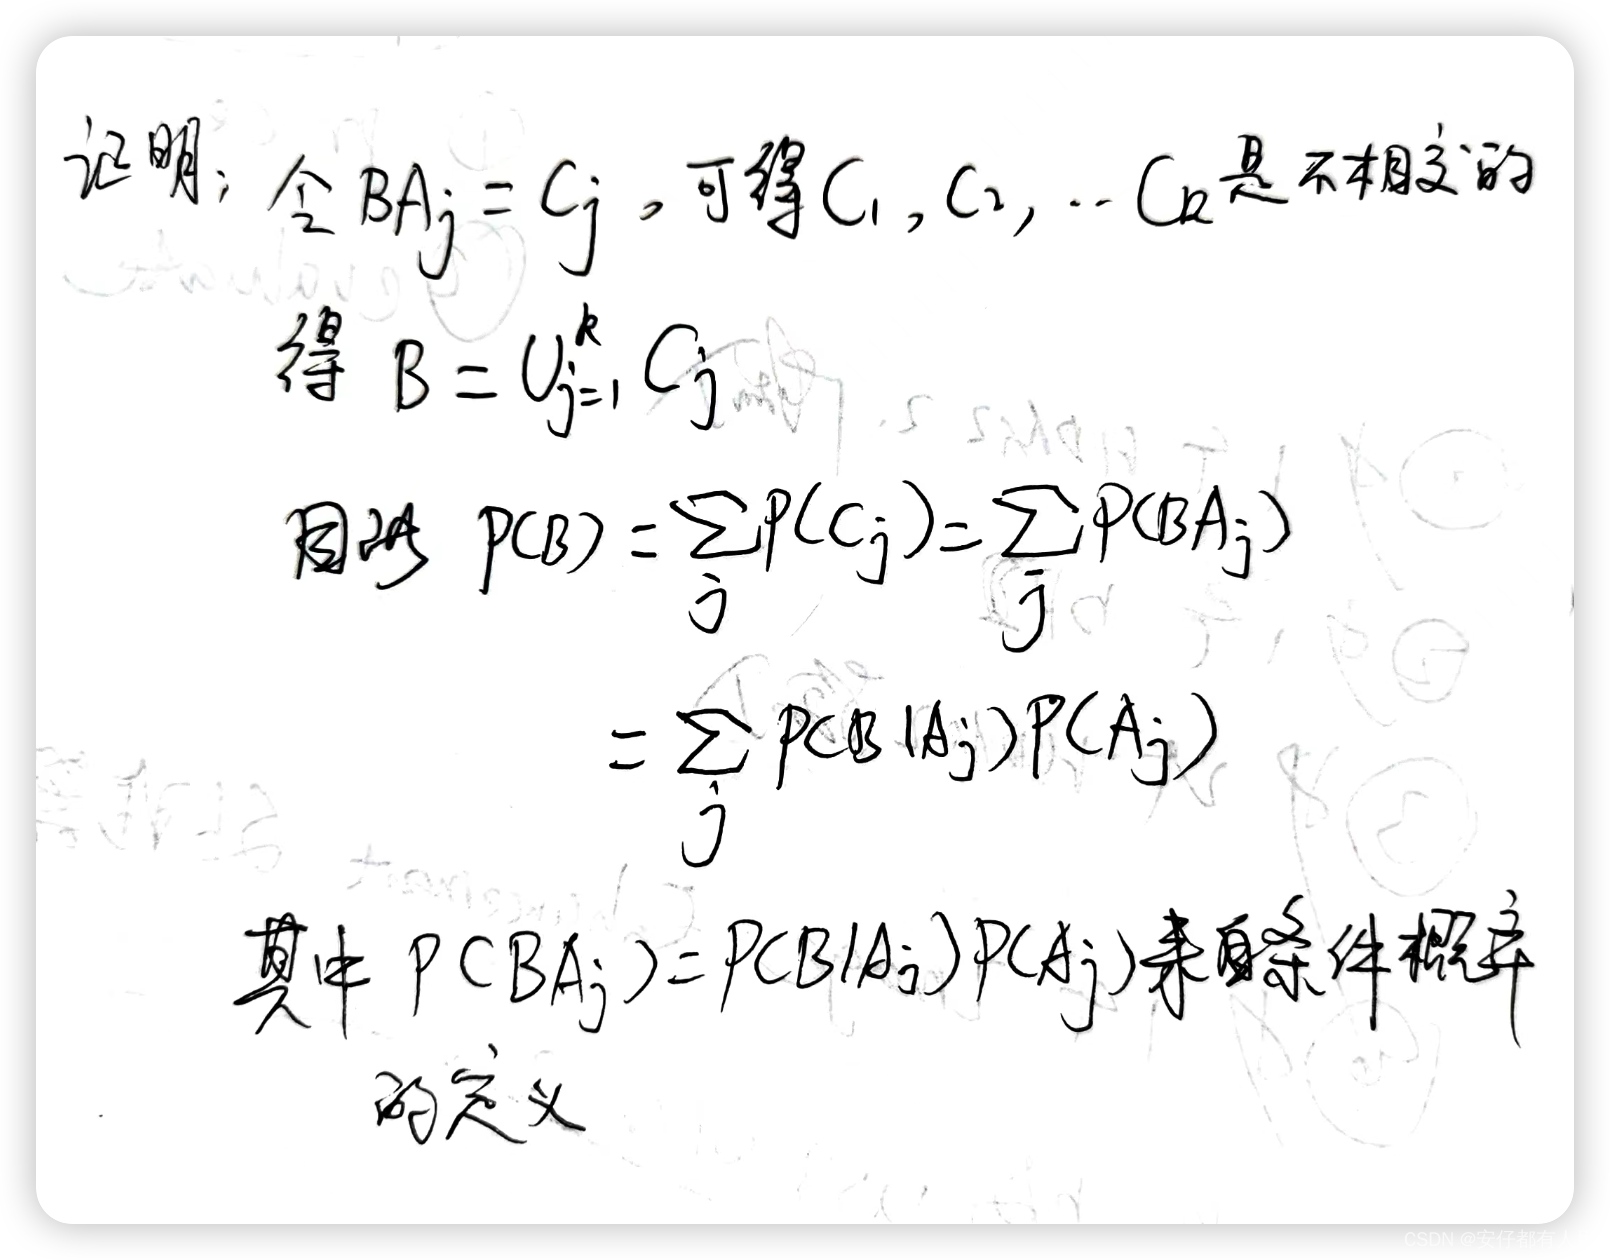 证明: 令 BAj = Cj , 可得 C1 , C2 , ·· Ck 是不相交的
得 B = ∪_{j=1}^{k} Cj
因此 P(B) = ∑_j P(Cj) = ∑_j P(BAj)
= ∑_j P(B|Aj)P(Aj)
其中 P(BAj) = P(B|Aj)P(Aj)来自条件概率
的定义
CSDN @安仔都有